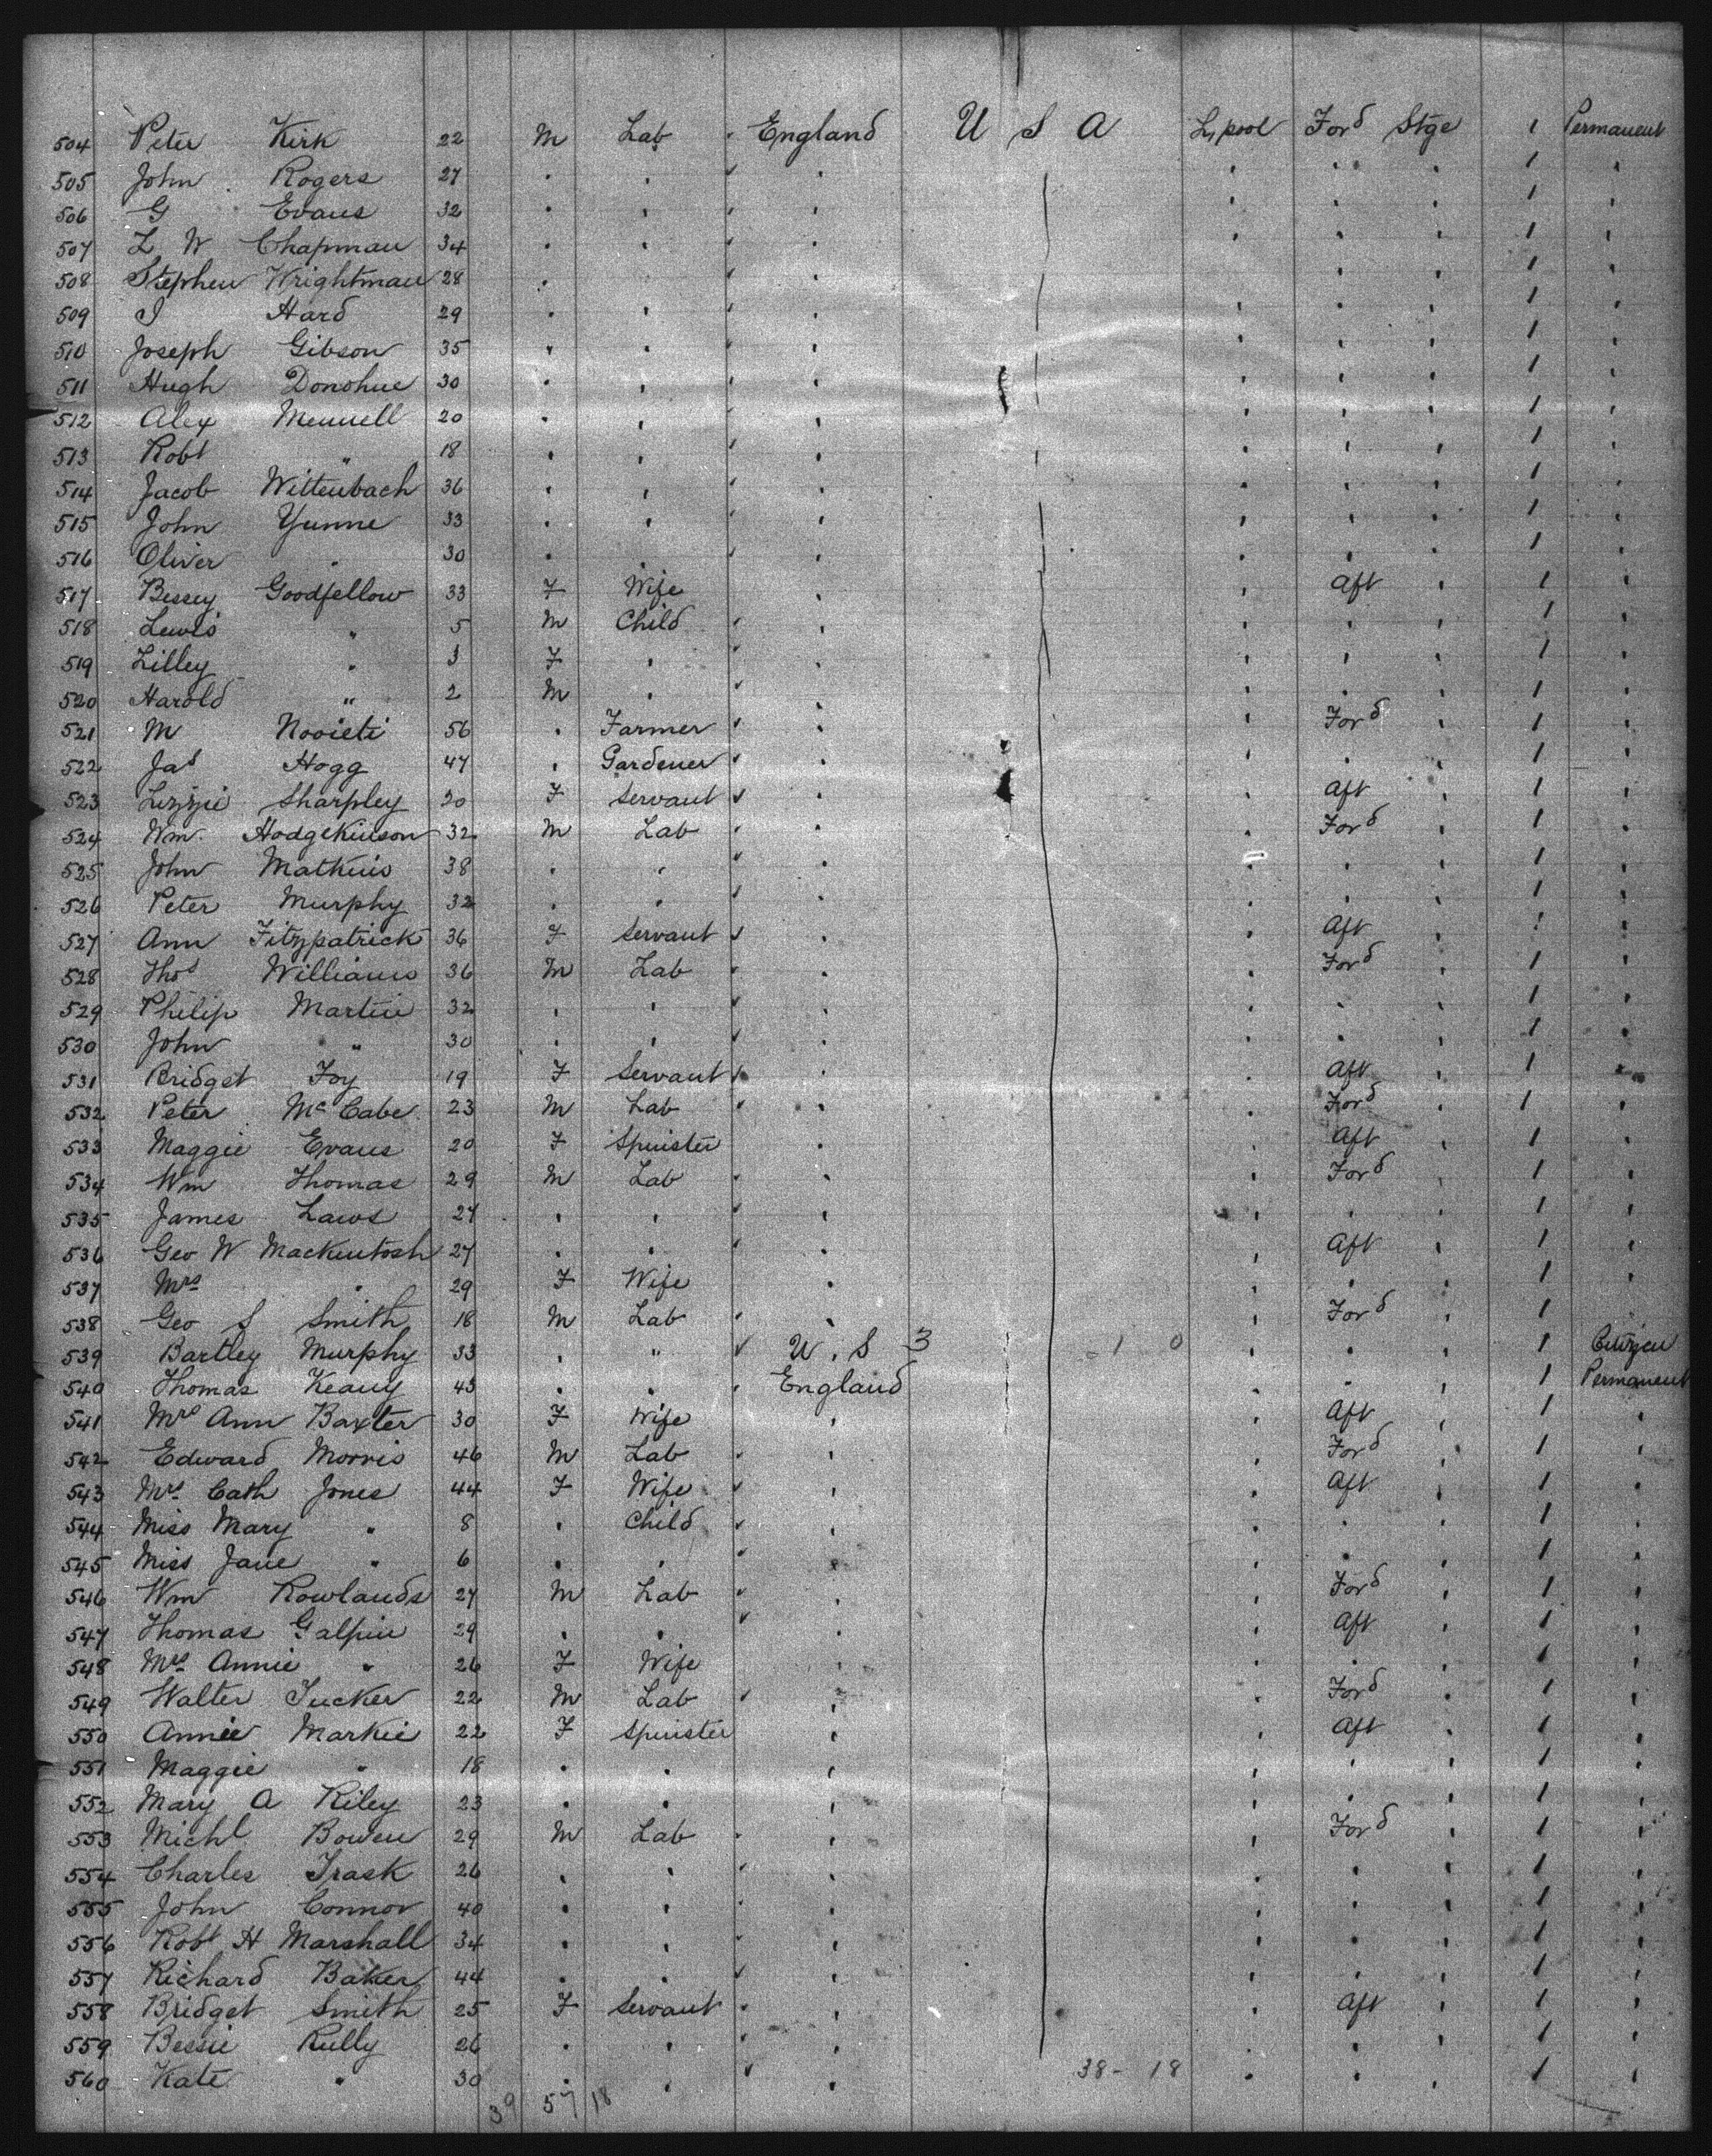 504 Peter Kirk 22 M Lab England U S A L,pool Ford Stge 1 Permanent
505 John Rogers 27 " " " " " " 1 "
506 G Evans 32 " " " " " " 1 "
507 L W Chapman 34 " " " " " " 1 "
508 Stephen Wrightman 28 " " " " " 1 "
509 J Hard 29 " " " " " " 1 "
510 Joseph Gibson 35 " " " " " " 1 "
511 Hugh Donohue 30 " " " " " " 1 "
512 Alex Mennell 20 " " " " " " 1 "
513 Robt " 18 " " " " " " 1 "
514 Jacob Wittenbach 36 " " " " " " 1 "
515 John Yunne 33 " " " " " " 1 "
516 Oliver " 30 " " " " " " 1 "
517 Bessey Goodfellow 33 F Wife " " Aft " 1 "
518 Lewis " 5 M Child " " " " 1 "
519 Lilley " 3 F " " " " " 1 "
520 Harold " 2 M " " " " " 1 "
521 M 56 " Farmer " " Ford " 1 "
522 Jas Hogg 47 " Gardener " " " " 1 "
523 Lizzie Sharpley 20 F Servant " " Aft " 1 "
524 Wm Hodgekinson 32 M Lab " " Ford " 1 "
525 John Mathuis 38 " " " " " " 1 "
526 Peter Murphy 32 " " " " " " 1 "
527 Ann Fitzpatrick 36 F Servant " " Aft " 1 "
528 Thos Williams 36 M Lab " " Ford " 1 "
529 Philip Martin 32 " " " " " " 1 "
530 John " 30 " " " " " " 1 "
531 Bridget Foy 19 F Servant " " Aft " 1 "
532 Peter McCabe 23 M Lab " " Ford " 1 "
533 Maggie Evans 20 F Spinster " " Aft " 1 "
534 Wm Thomas 29 M Lab " " Ford " 1 "
535 James Laws 27 " " " " " " 1 "
536 Geo W Mackintosh 27 " " " " Aft " 1 "
537 Mrs " 29 F Wife " " " " 1 "
538 Geo S Smith 18 M Lab " " Ford " 1 "
539 Bartley Murphy 33 " " U. S 3 - 1 0 " " " 1 Citizen
540 Thomas Keany 43 " " England " " " 1 Permanent
541 Mrs Ann Baxter 30 F Wife " " Aft " 1 "
542 Edward Morris 46 M Lab " " Ford " 1 "
543 Mrs Cath Jones 44 F Wife " " Aft " 1 "
544 Miss Mary " 8 " Child " " " " 1 "
545 Miss Jane " 6 " " " " " " 1 "
546 Wm Rowlands 27 M Lab " " Ford " 1 "
547 Thomas Galpin 29 " " " " Aft " 1 "
548 Mrs Annie " 26 F Wife " " " " 1 "
549 Walter Tucker 22 M Lab " " Ford " 1 "
550 Annie Markie 22 F Spinster " " Aft " 1 "
551 Maggie " 18 " " " " " " 1 "
552 Mary A Riley 23 " " " " " " 1 "
553 Michl Bowen 29 M Lab " " Ford " 1 "
554 Charles Trask 26 " " " " " " 1 "
555 John Connor 40 " " " " " " 1 "
556 Robt H Marshall 34 " " " " " " 1 "
557 Richard Baker 44 " " " " " " 1 "
558 Bridget Smith 25 F Servant " " Aft " 1 "
559 Bessie Rully 26 " " " " " " 1 "
560 Kate " 30 " " " 38 - 18 " " " 1 "
39 57 18